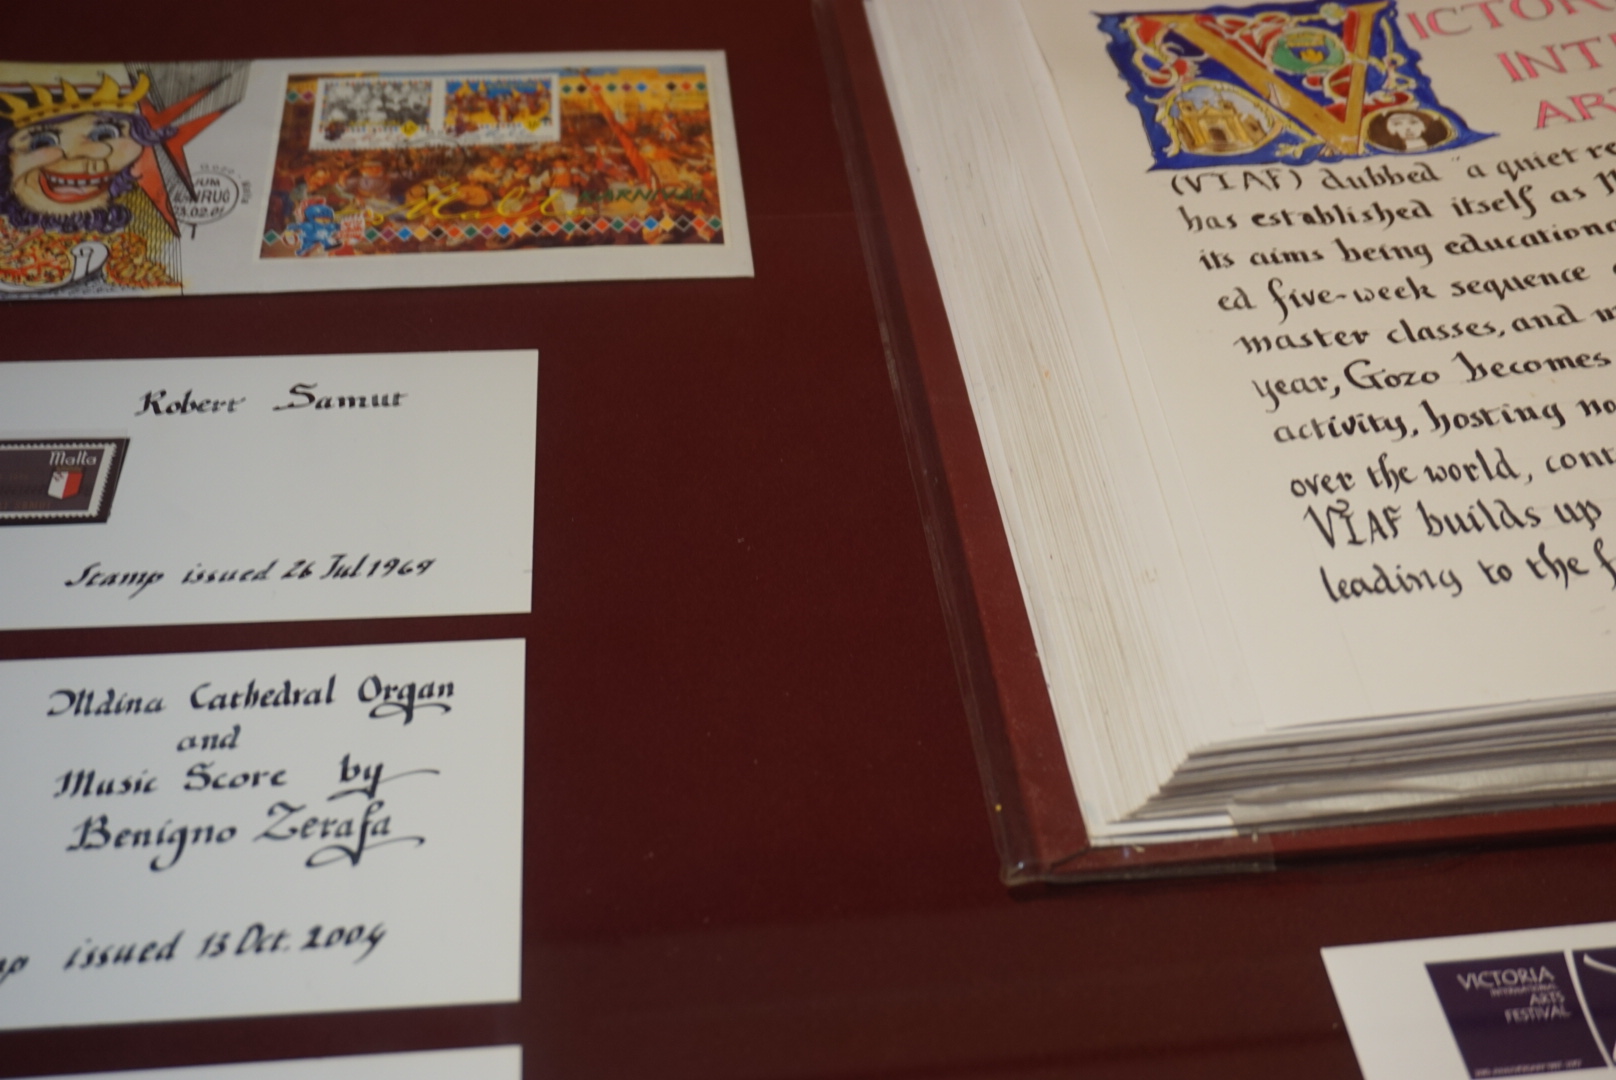 JUM
23.02.01
Malta KARNIVAL
Robert Samut
Malta
Stamp issued 26 Jul 1969
Mdina Cathedral Organ
and
Music Score by
Benigno Zerafa
issued 13 Oct. 2004
VICTOR
INT
ART
(VIAF) dubbed "a quiet re
has established itself as
its aims being educationa
ed five-week sequence
master classes, and
year, Gozo becomes
activity, hosting no
over the world, cont
VIAF builds up
leading to the f
VICTORIA
INTERNATIONAL
ARTS
FESTIVAL